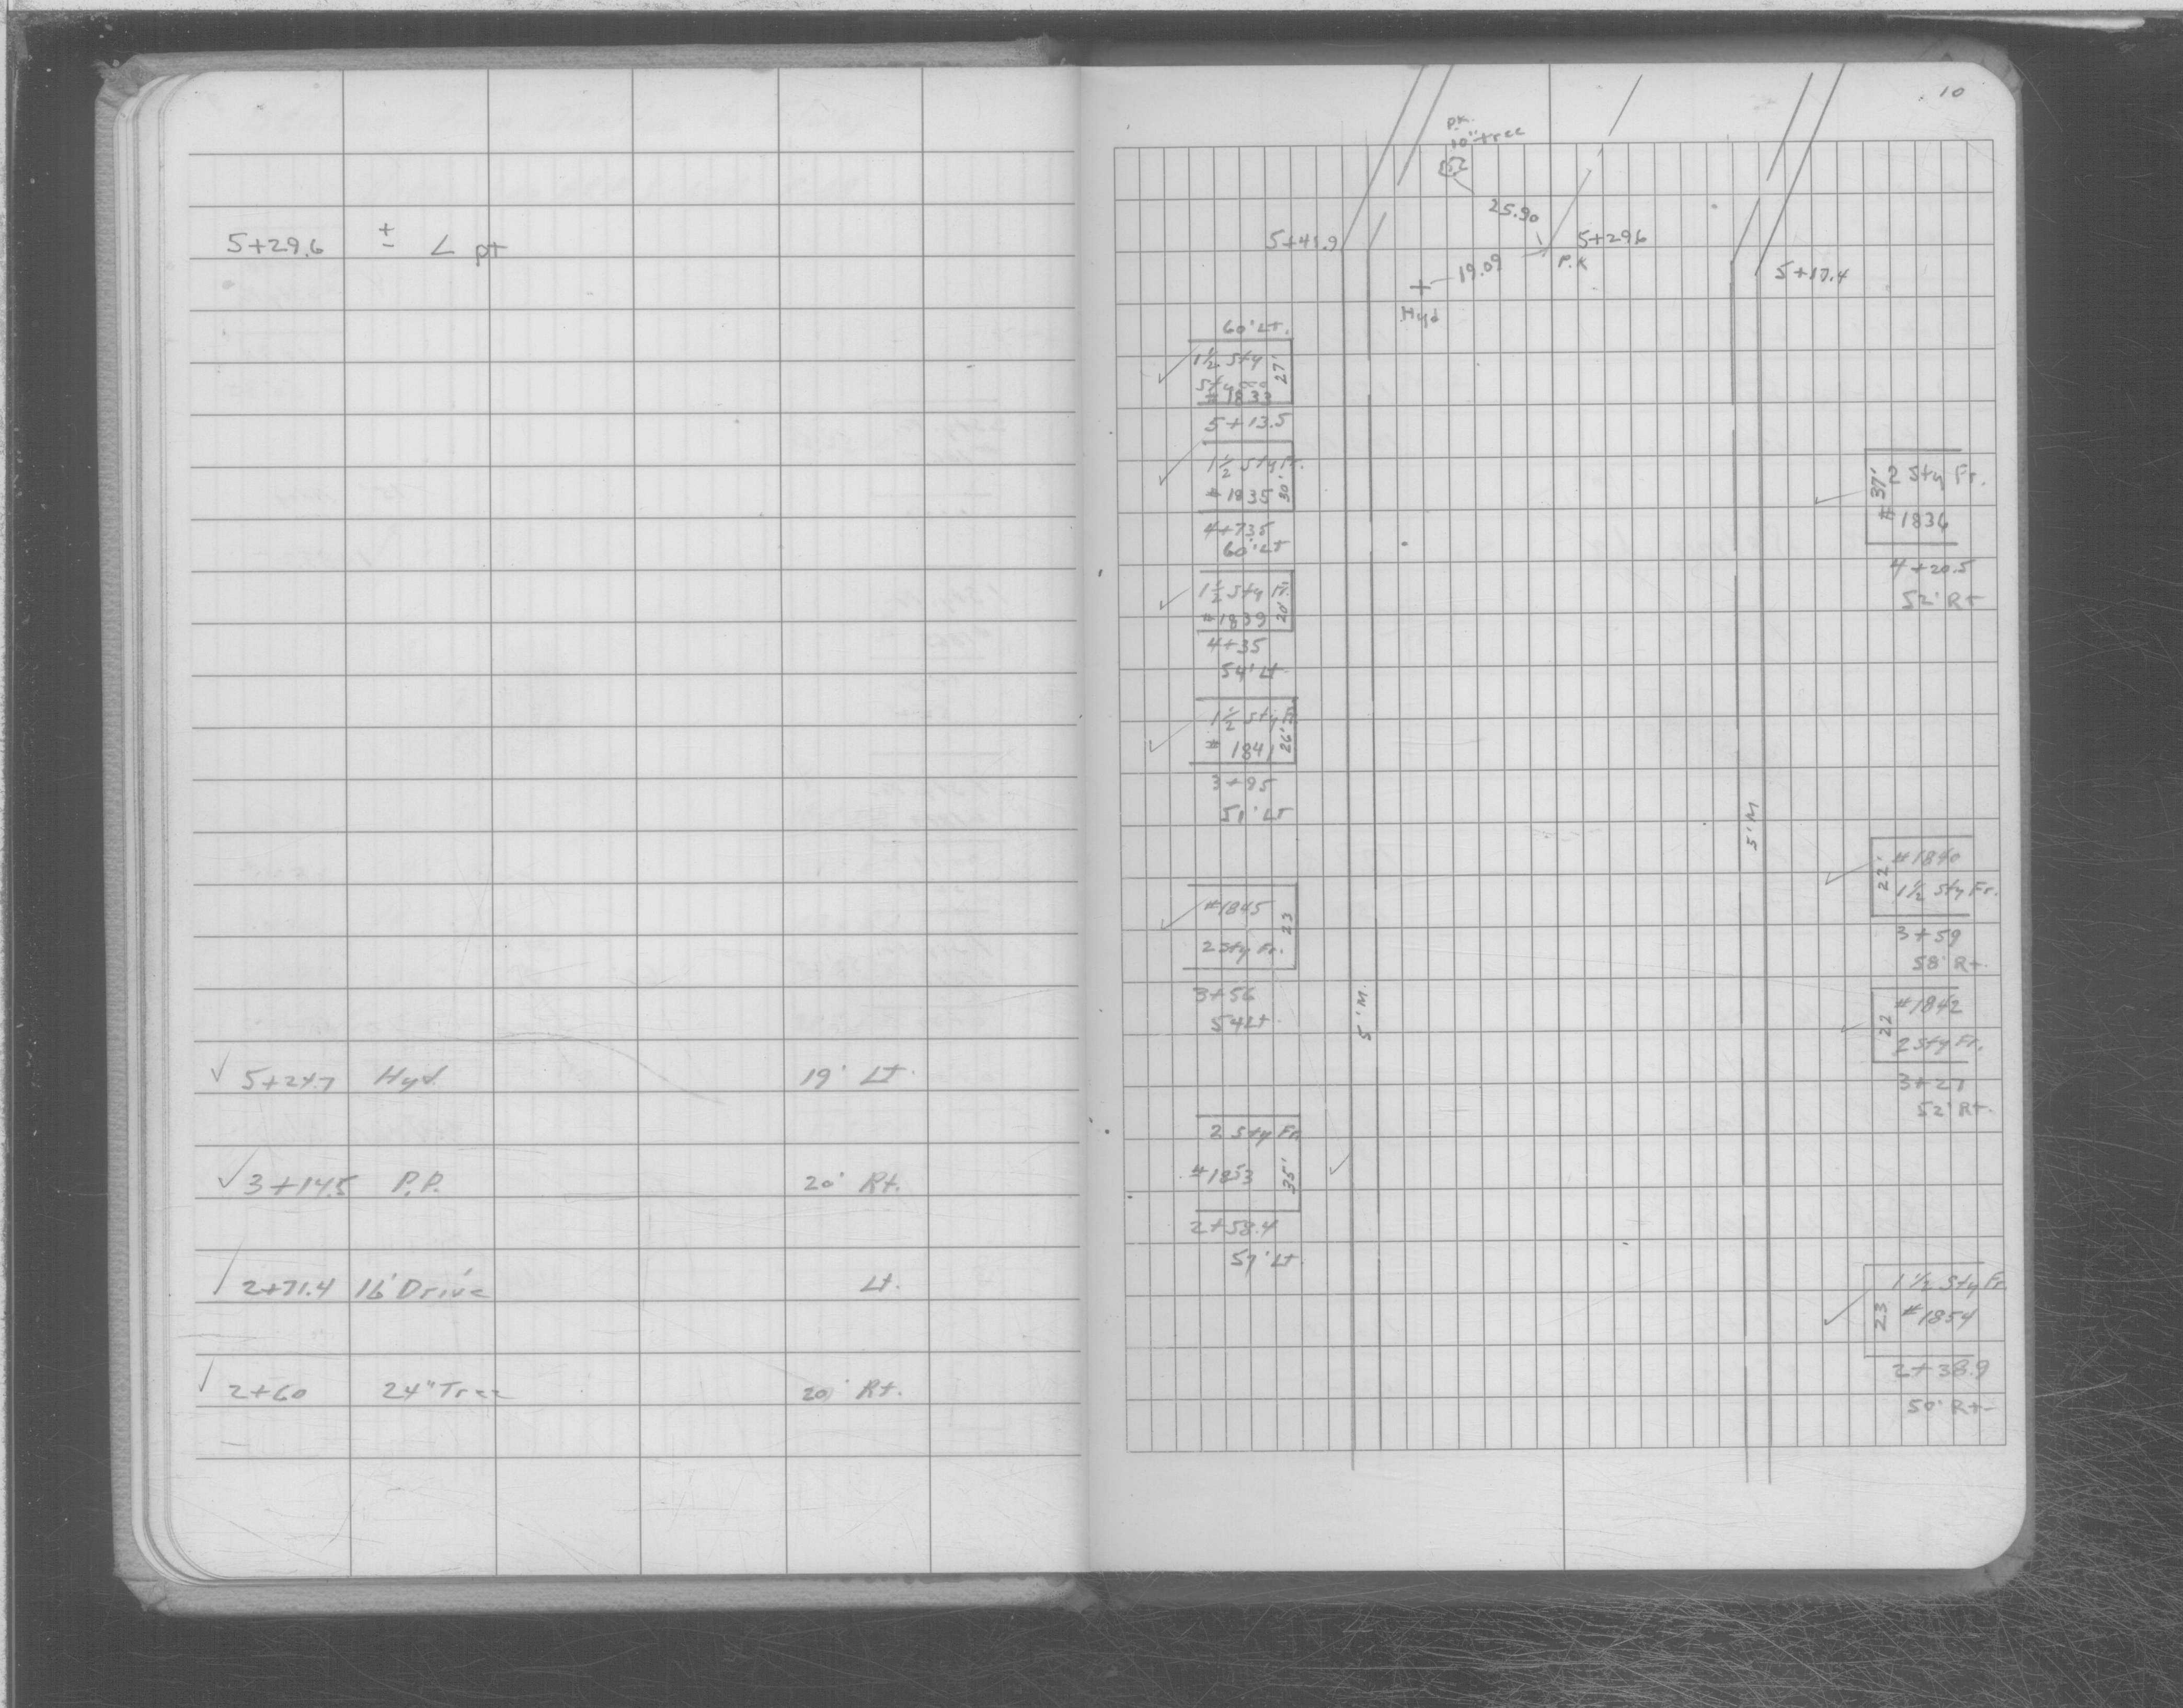 5+29.6 ± ∠ pt
✓ 5+27.7 Hyd. 19' Lt.
✓ 3+14.5 P.P. 20' Rt.
2+71.4 16' Drive Lt.
✓ 2+60 24" Tree 20' Rt.
10
P.K.
10" tree
25.90
5+41.9
5+29.6
P.K
19.09
5+17.4
Hyd
60' Lt.
1½ Sty
27'
# 1833
5+13.5
1½ Sty Fr.
# 1835
30'
4+73.5
60' Lt
1½ Sty Fr.
# 1839
20'
4+35
54' Lt.
1½ Sty Fr.
# 1841
26'
3+95
51' Lt
#1845
2 Sty Fr.
23
3+56
54 Lt.
5' M.
2 Sty Fr.
#1853
35'
2+58.4
57' Lt
37'
2 Sty Fr.
# 1836
4+20.5
52' Rt
5' M
22'
#1840
1½ Sty Fr.
3+59
58' Rt.
22
#1842
2 Sty Fr.
3+21
52' Rt.
1½ Sty Fr.
23
#1854
2+38.9
50' Rt-